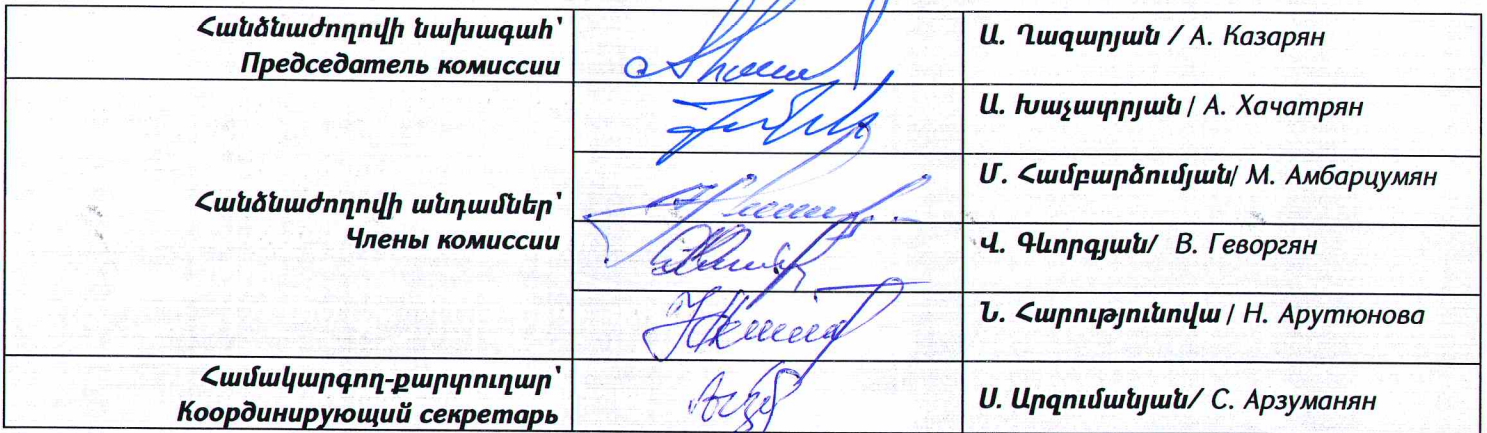 Հանձնաժողովի նախագահ՝
Председатель комиссии
Ա. Ղազարյան / А. Казарян
Ա. Խաչատրյան / А. Хачатрян
Հանձնաժողովի անդամներ՝
Члены комиссии
Մ. Համբարձումյան/ М. Амбарцумян
Վ. Գևորգյան/ В. Геворгян
Ն. Հարությունովա / Н. Арутюнова
Համակարգող-քարտուղար՝
Координирующий секретарь
Ս. Արզումանյան/ С. Арзуманян